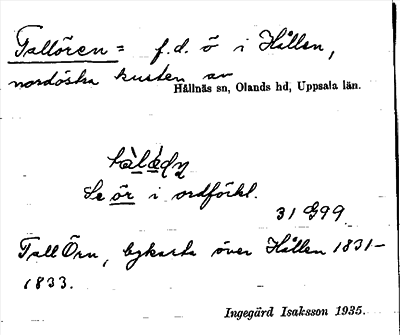 Tallören = f.d. ö i Hållen,
nordöstra kusten av
Hållnäs sn, Olands hd, Uppsala län.
Se ör i ordförkl.
31 G99
Tall Örn, bykarta över Hållen 1831–
1833.
Ingegärd Isaksson 1935.